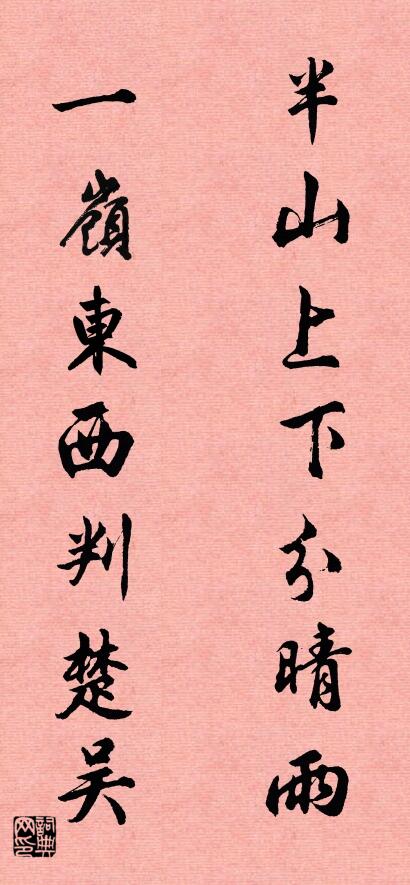 半山上下分晴雨
一嶺東西判楚吴
詞典网印